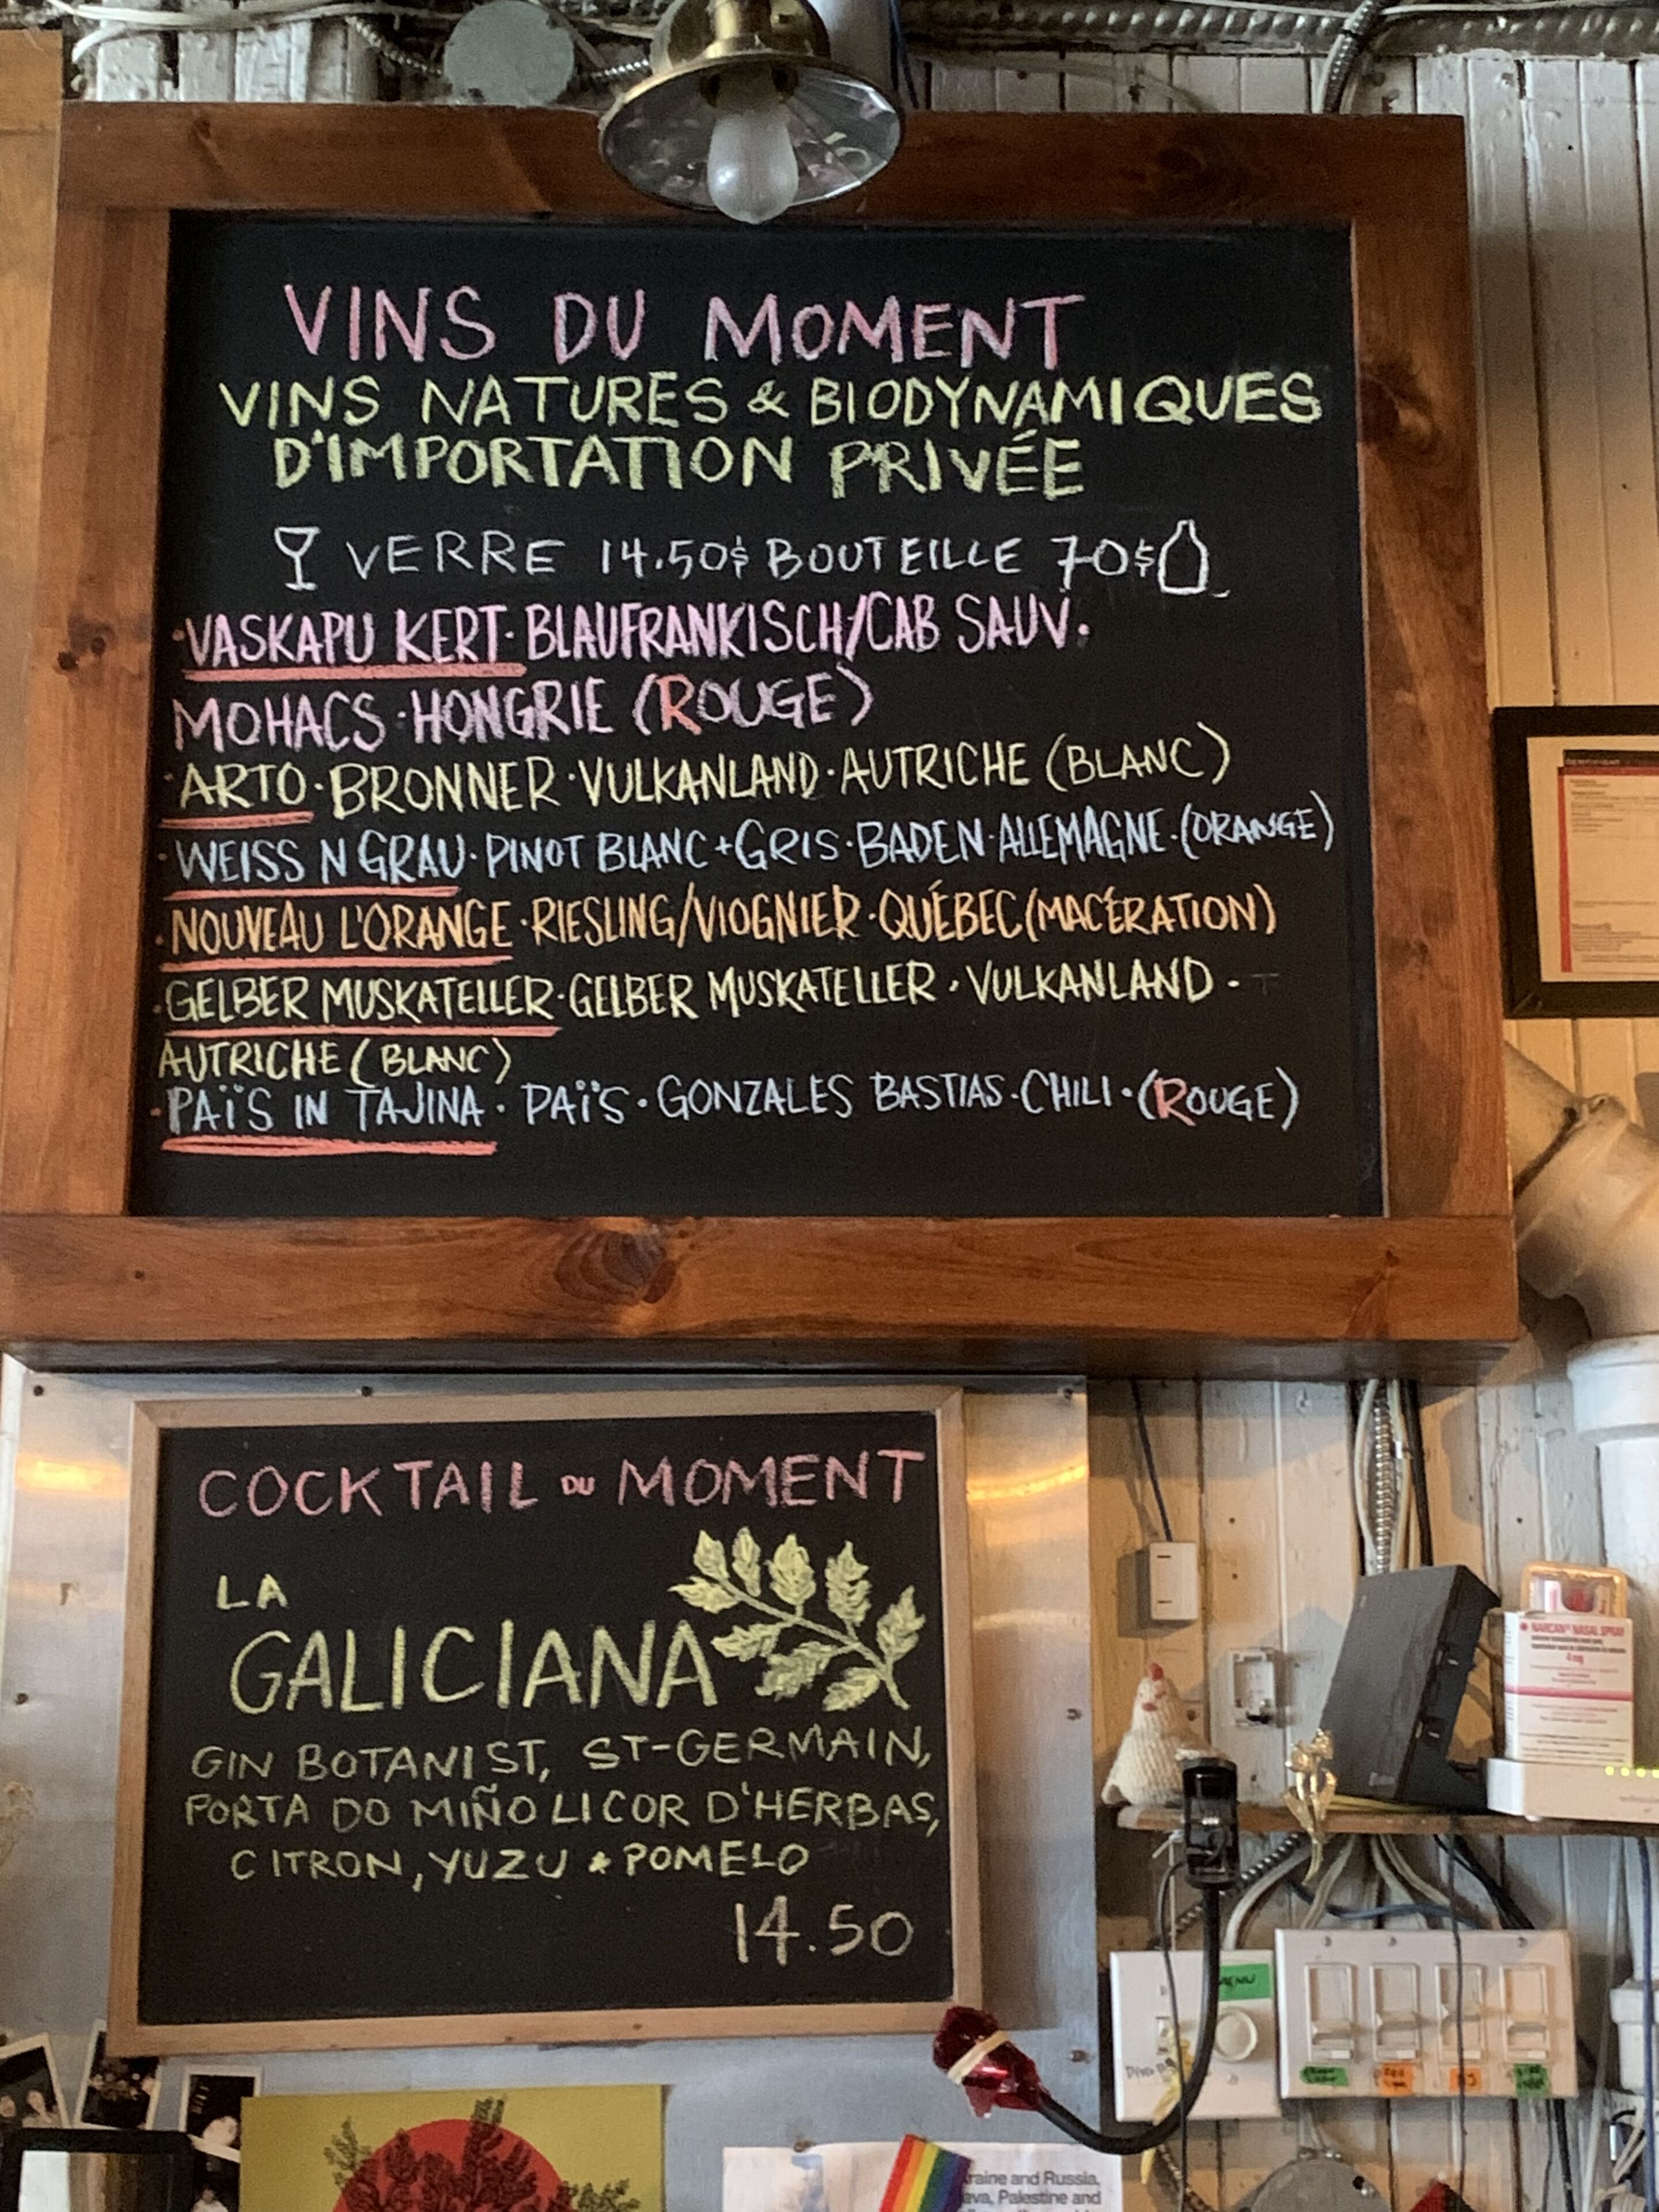 VINS DU MOMENT
VINS NATURES & BIODYNAMIQUES
D'IMPORTATION PRIVÉE
VERRE 14.50$ BOUTEILLE 70$
·VASKAPU KERT· BLAUFRANKISCH/CAB SAUV.
MOHACS · HONGRIE (ROUGE)
·ARTO·BRONNER·VULKANLAND·AUTRICHE (BLANC)
·WEISS N GRAU·PINOT BLANC+GRIS·BADEN·ALLEMAGNE·(ORANGE)
·NOUVEAU L'ORANGE·RIESLING/VIOGNIER·QUÉBEC (MACÉRATION)
·GELBER MUSKATELLER·GELBER MUSKATELLER·VULKANLAND-
AUTRICHE (BLANC)
·PAÏS IN TAJINA· PAÏS·GONZALES BASTIAS·CHILI·(ROUGE)
COCKTAIL DU MOMENT
LA
GALICIANA
GIN BOTANIST, ST-GERMAIN,
PORTA DO MIÑO LICOR D'HERBAS,
CITRON, YUZU & POMELO
14.50
NARCAN® NASAL SPRAY
4 mg
MENU
raine and Russia,
ava, Palestine and